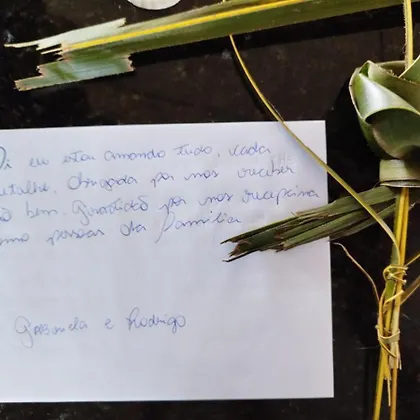 Oi eu estou amando tudo, cada
detalhe. Obrigada por nos receber
tão bem. Gratidão por nos recepcionar
como pessoas da família.
Gabriela e Rodrigo